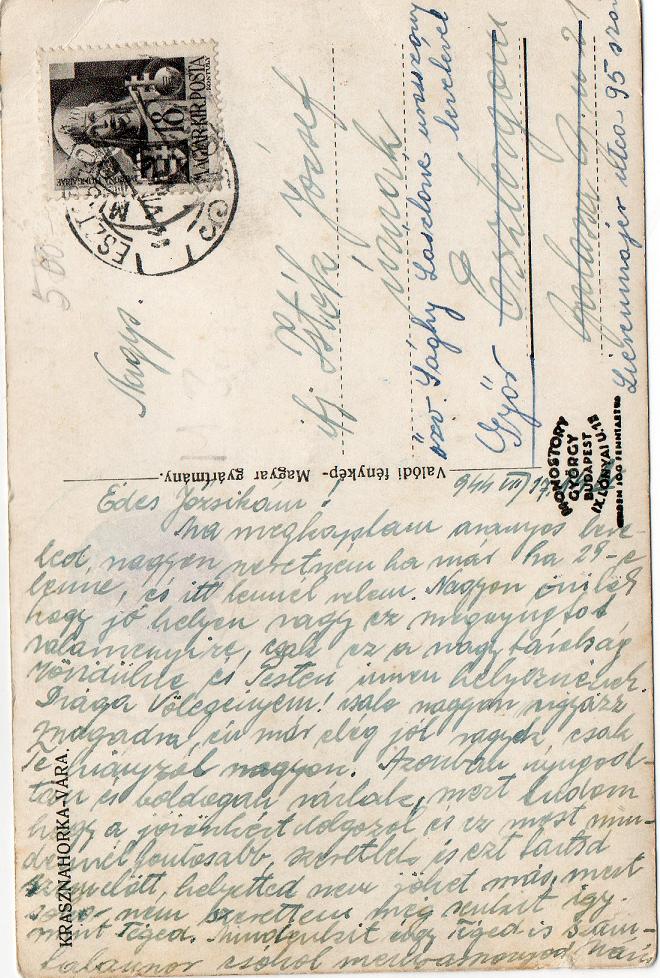 Nagys.
ifj Isták József
úrnak
özv. Sághy Lászlóné úrasszony
levelével
Esztergom
Győr
Liezenmajer utca 95 szám
MAGYAR KIR. POSTA
18
ESZT
500-
Valódi fénykép- Magyar gyártmány.
MONOSTORY
GYÖRGY
BUDAPEST
IX. LÓNYAI U. 15
MINDEN JOG FENNTARTVA
KRASZNAHORKA-VÁRA.
944 VIII 17
Édes Józsikám!
Ma megkaptam aranyos leve-
led, nagyon szeretném ha már ha 29-e
lenne, és itt lennél velem. Nagyon örülök
hogy jó helyen vagy ez megnyugtat
valamennyire, csak ez a nagy távolság
és Pesten innen helyeznének.
Drága Vőlegényem! nagyon vigyázz
magadra, én már elég jól vagyok csak
Te hiányzol nagyon. Azonban nyugod-
tan és boldogan várlak, mert tudom
hogy a jövőnkért dolgozol és ez most min-
dennél fontosabb, szeretlek és ezt tartsd
szemelőtt, helyetted nem jöhet más, mert
soha nem szerettem még senkit így
mint Téged. Mindenkit úgy Téged is szám-
talanszor csókol menyasszonyod